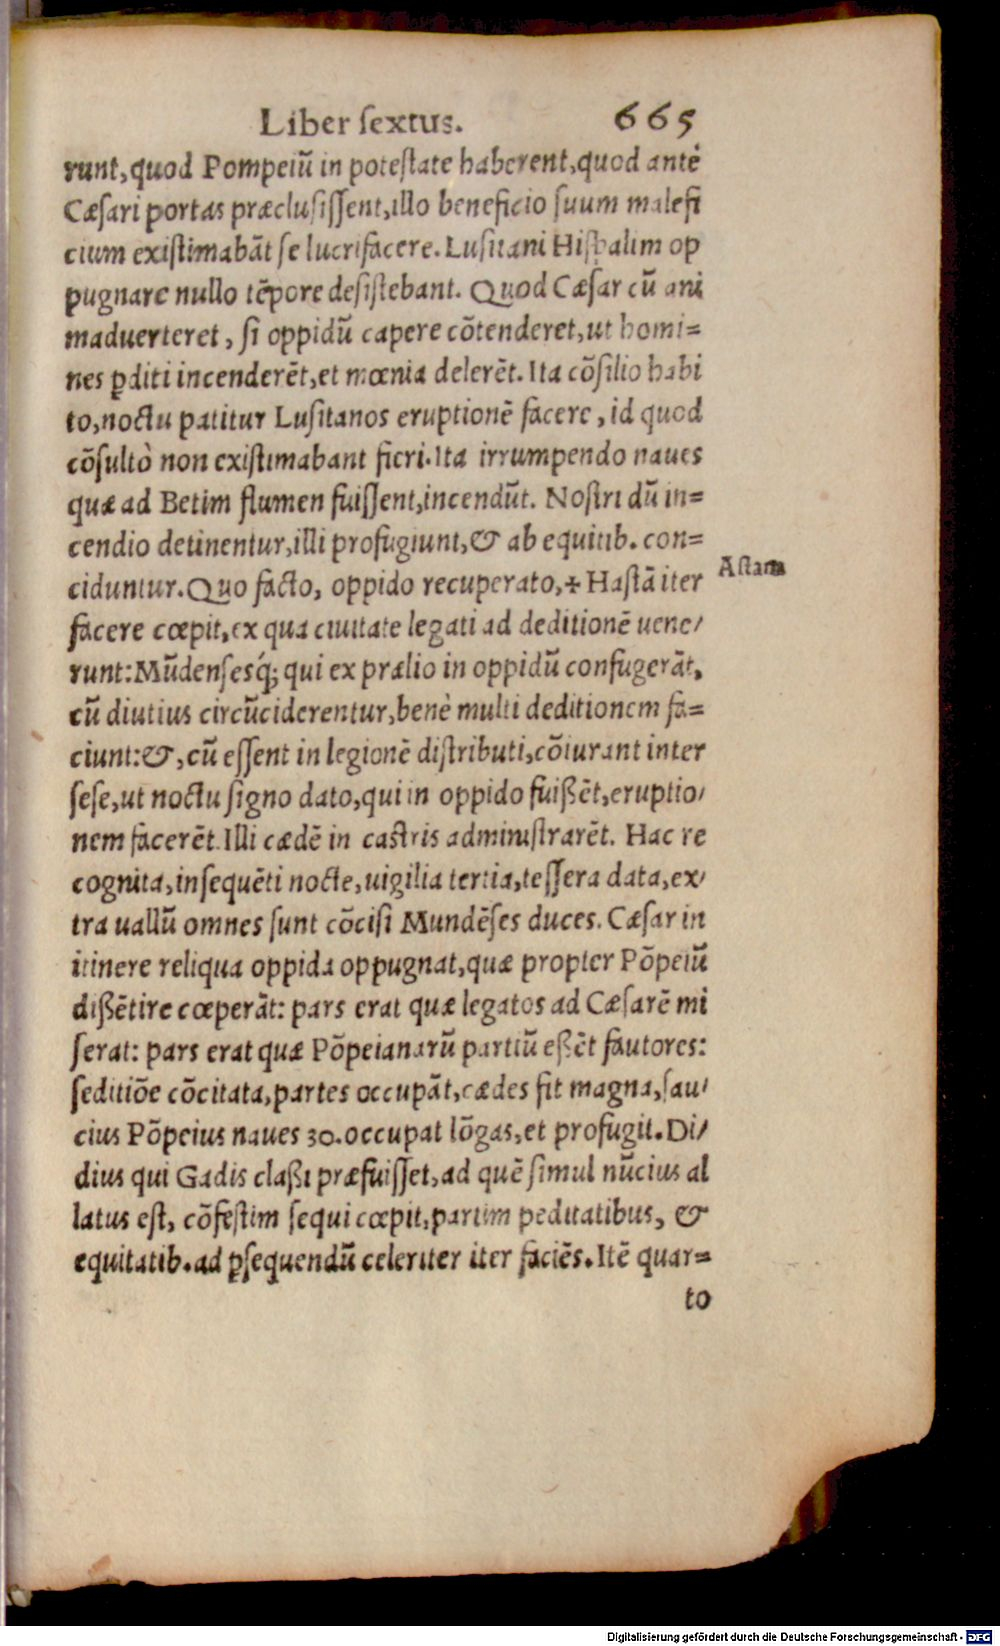 Liber ſextus. 665
runt, quod Pompeiũ in poteſtate haberent, quod antè
Cæſari portas præcluſiſſent, illo beneficio ſuum malefi
cium exiſtimabãt ſe lucrifacere. Luſitani Hiſpalim op
pugnare nullo tẽpore deſiſtebant. Quod Cæſar cũ ani
maduerteret, ſi oppidũ capere cõtenderet, ut homi=
nes ꝑditi incenderẽt, et mœnia delerẽt. Ita cõſilio habi
to, noctu patitur Luſitanos eruptionẽ facere, id quod
cõſultò non exiſtimabant fieri. Ita irrumpendo naues
quæ ad Betim flumen fuiſſent, incendũt. Noſtri dũ in=
cendio detinentur, illi profugiunt, & ab equitib. con=
ciduntur. Quo facto, oppido recuperato, ✢ Haſtã iter
Aſtam
facere cœpit, ex qua ciuitate legati ad deditionẽ uene/
runt: Mũdenſesq́; qui ex prælio in oppidũ confugerãt,
cũ diutius circũciderentur, benè multi deditionem fa=
ciunt: &, cũ eſſent in legionẽ diſtributi, cõiurant inter
ſeſe, ut noctu ſigno dato, qui in oppido fuißẽt, eruptio/
nem facerẽt. Illi cædẽ in caſtris adminiſtrarẽt. Hac re
cognita, inſequẽti nocte, uigilia tertia, teſſera data, ex/
tra uallũ omnes ſunt cõciſi Mundẽſes duces. Cæſar in
itinere reliqua oppida oppugnat, quæ propter Põpeiũ
dißẽtire cœperãt: pars erat quæ legatos ad Cæſarẽ mi
ſerat: pars erat quæ Põpeianarũ partiũ eßẽt fautores:
ſeditiõe cõcitata, partes occupãt, cædes fit magna, ſau/
cius Põpeius naues 30. occupat lõgas, et profugit. Di/
dius qui Gadis claßi præfuiſſet, ad quẽ ſimul nũcius al
latus eſt, cõfeſtim ſequi cœpit, partim peditatibus, &
equitatib. ad ꝑſequendũ celeriter iter faciẽs. Itẽ quar=
to
Digitalisierung gefördert durch die Deutsche Forschungsgemeinschaft - DFG